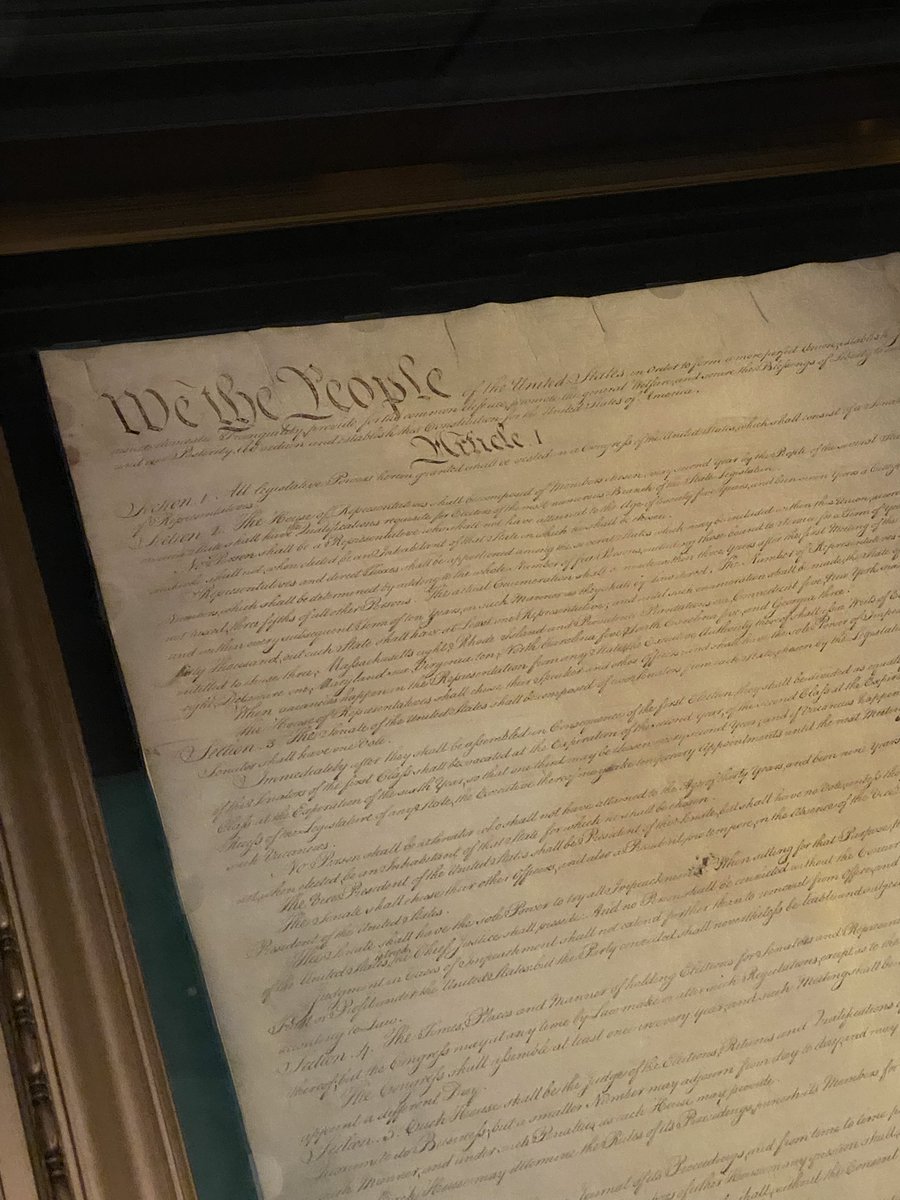 We the People of the United States, in Order to form a more perfect Union, establish
insure domestic Tranquility, provide for the common defence, promote the general Welfare, and secure the Blessings of Liberty to
and our Posterity, do ordain and establish this Constitution for the United States of America.
Article I
Section. 1. All legislative Powers herein granted shall be vested in a Congress of the United States, which shall consist of a Senate
of Representatives.
Section. 2. The House of Representatives shall be composed of Members chosen every second Year by the People of the several States
in each State shall have the Qualifications requisite for Electors of the most numerous Branch of the State Legislature.
No Person shall be a Representative who shall not have attained to the Age of twenty five Years, and been seven Years a Citizen
and who shall not, when elected, be an Inhabitant of that State in which he shall be chosen.
Representatives and direct Taxes shall be apportioned among the several States which may be included within this Union, according
Numbers, which shall be determined by adding to the whole Number of free Persons, including those bound to Service for a Term of Years
not taxed, three fifths of all other Persons. The actual Enumeration shall be made within three Years after the first Meeting of the
and within every subsequent Term of ten Years, in such Manner as they shall by Law direct. The Number of Representatives
thirty Thousand, but each State shall have at Least one Representative; and until such enumeration shall be made, the State of
entitled to chuse three, Massachusetts eight, Rhode Island and Providence Plantations one, Connecticut five, New York six
eight, Delaware one, Maryland six, Virginia ten, North Carolina five, South Carolina five, and Georgia three.
When vacancies happen in the Representation from any State, the Executive Authority thereof shall issue Writs of
The House of Representatives shall chuse their Speaker and other Officers; and shall have the sole Power of Impeachment
Section. 3. The Senate of the United States shall be composed of two Senators from each State, chosen by the Legislature
Senator shall have one Vote.
Immediately after they shall be assembled in Consequence of the first Election, they shall be divided as equally
of the Senators of the first Class shall be vacated at the Expiration of the second Year, of the second Class at the Expiration
Class at the Expiration of the sixth Year, so that one third may be chosen every second Year; and if Vacancies happen
Recess of the Legislature of any State, the Executive thereof may make temporary Appointments until the next Meeting
such Vacancies.
No Person shall be a Senator who shall not have attained to the Age of thirty Years, and been nine Years
not, when elected, be an Inhabitant of that State for which he shall be chosen.
The Vice President of the United States shall be President of the Senate, but shall have no Vote, unless they
The Senate shall chuse their other Officers, and also a President pro tempore, in the Absence of the Vice
President of the United States.
The Senate shall have the sole Power to try all Impeachments. When sitting for that Purpose, they
of the United States is tried, the Chief Justice shall preside: And no Person shall be convicted without the Concurrence
Judgment in Cases of Impeachment shall not extend further than to removal from Office, and
Trust or Profit under the United States: but the Party convicted shall nevertheless be liable and subject
according to Law.
Section. 4. The Times, Places and Manner of holding Elections for Senators and Representatives
thereof; but the Congress may at any time by Law make or alter such Regulations, except as to the
The Congress shall assemble at least once in every Year, and such Meeting shall be
appoint a different Day.
Section. 5. Each House shall be the Judge of the Elections, Returns and Qualifications of
Quorum to do Business; but a smaller Number may adjourn from day to day, and may
such Manner, and under such Penalties as each House may provide.
Each House may determine the Rules of its Proceedings, punish its Members for
Journal of its Proceedings, and from time to time
of either House on any question shall
shall, without the Consent